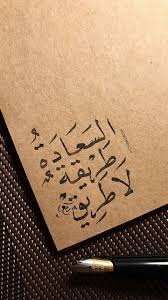 السَعَادَةُ
طَرِيْقَةٌ
لَا طَرِيقٌ